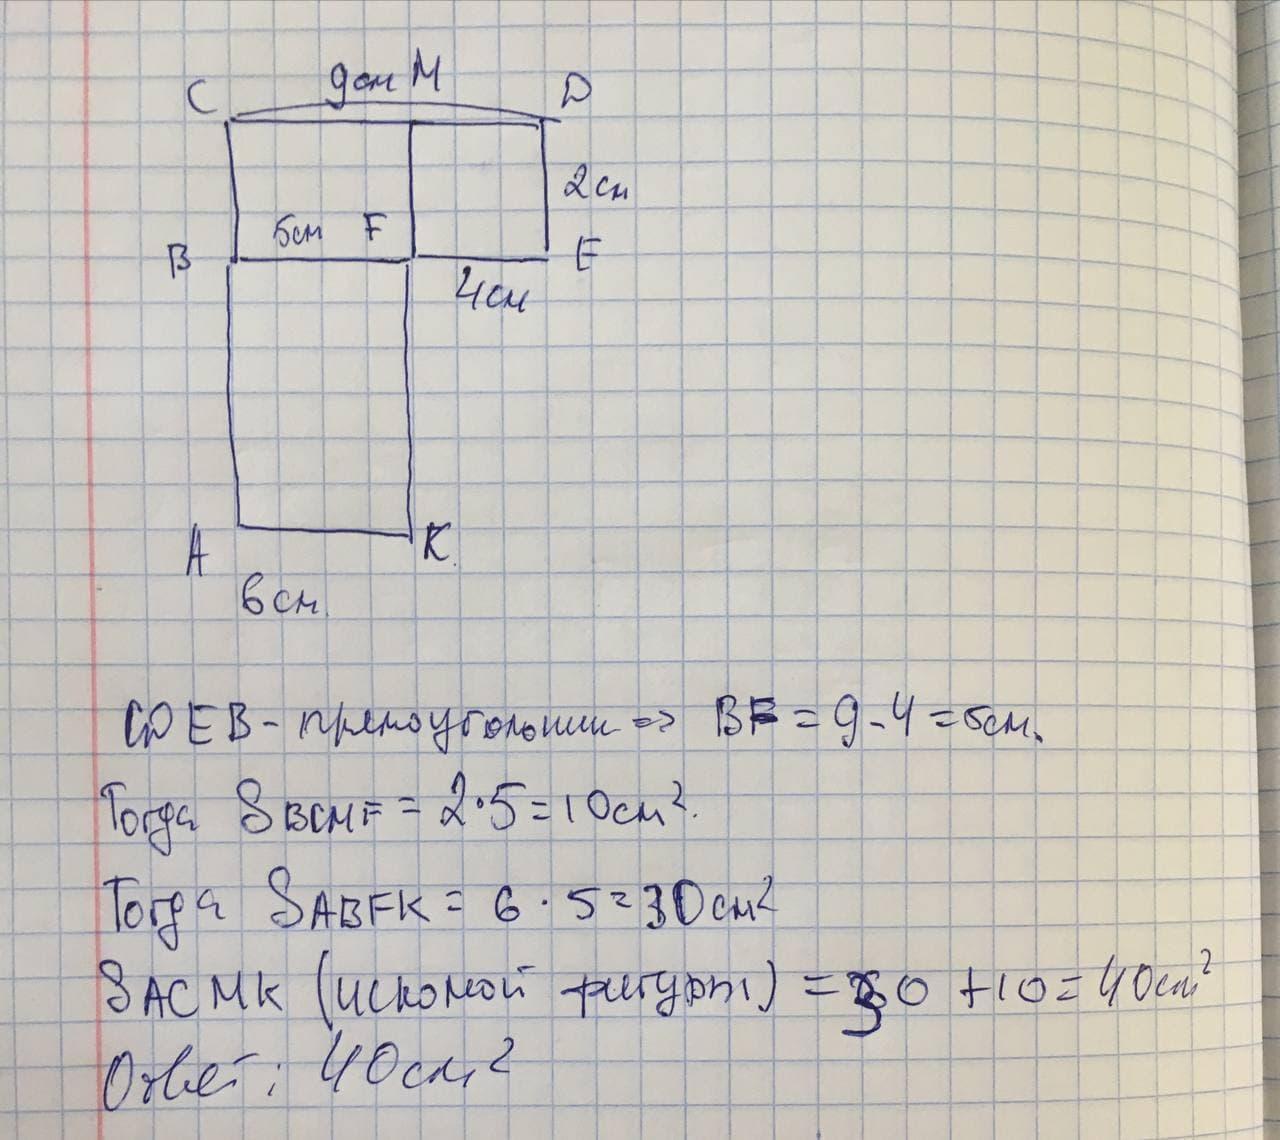 C 9см M D
2см
5см F
B E
4см
A K
6см.
CDEB - прямоугольник => BF = 9 - 4 = 5см.
Тогда SBCMF = 2·5 = 10см².
Тогда SABFK = 6 · 5 = 30см²
SACMK (искомой фигуры) = 30 + 10 = 40см²
Ответ: 40см²